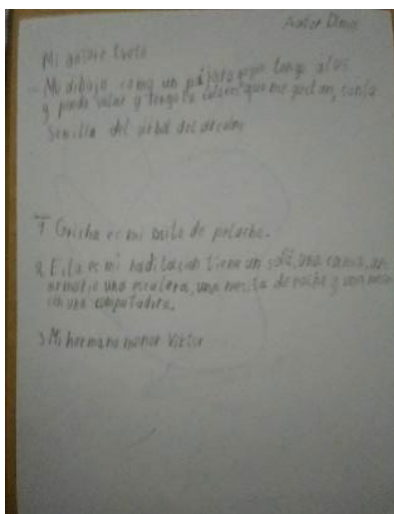 Autor Dima
Mi nombre
Me dibujo como un pájaro tengo alas
y puedo volar y tengo colores que me gustan, con la
Semilla del árbol del
1 Grisha es mi osito de peluche.
2 Esta es mi habitacion tiene un sofá, una cama, un
armario una escalera, una mesita de noche y una mesa
con una computadora.
3 Mi hermano menor Viktor